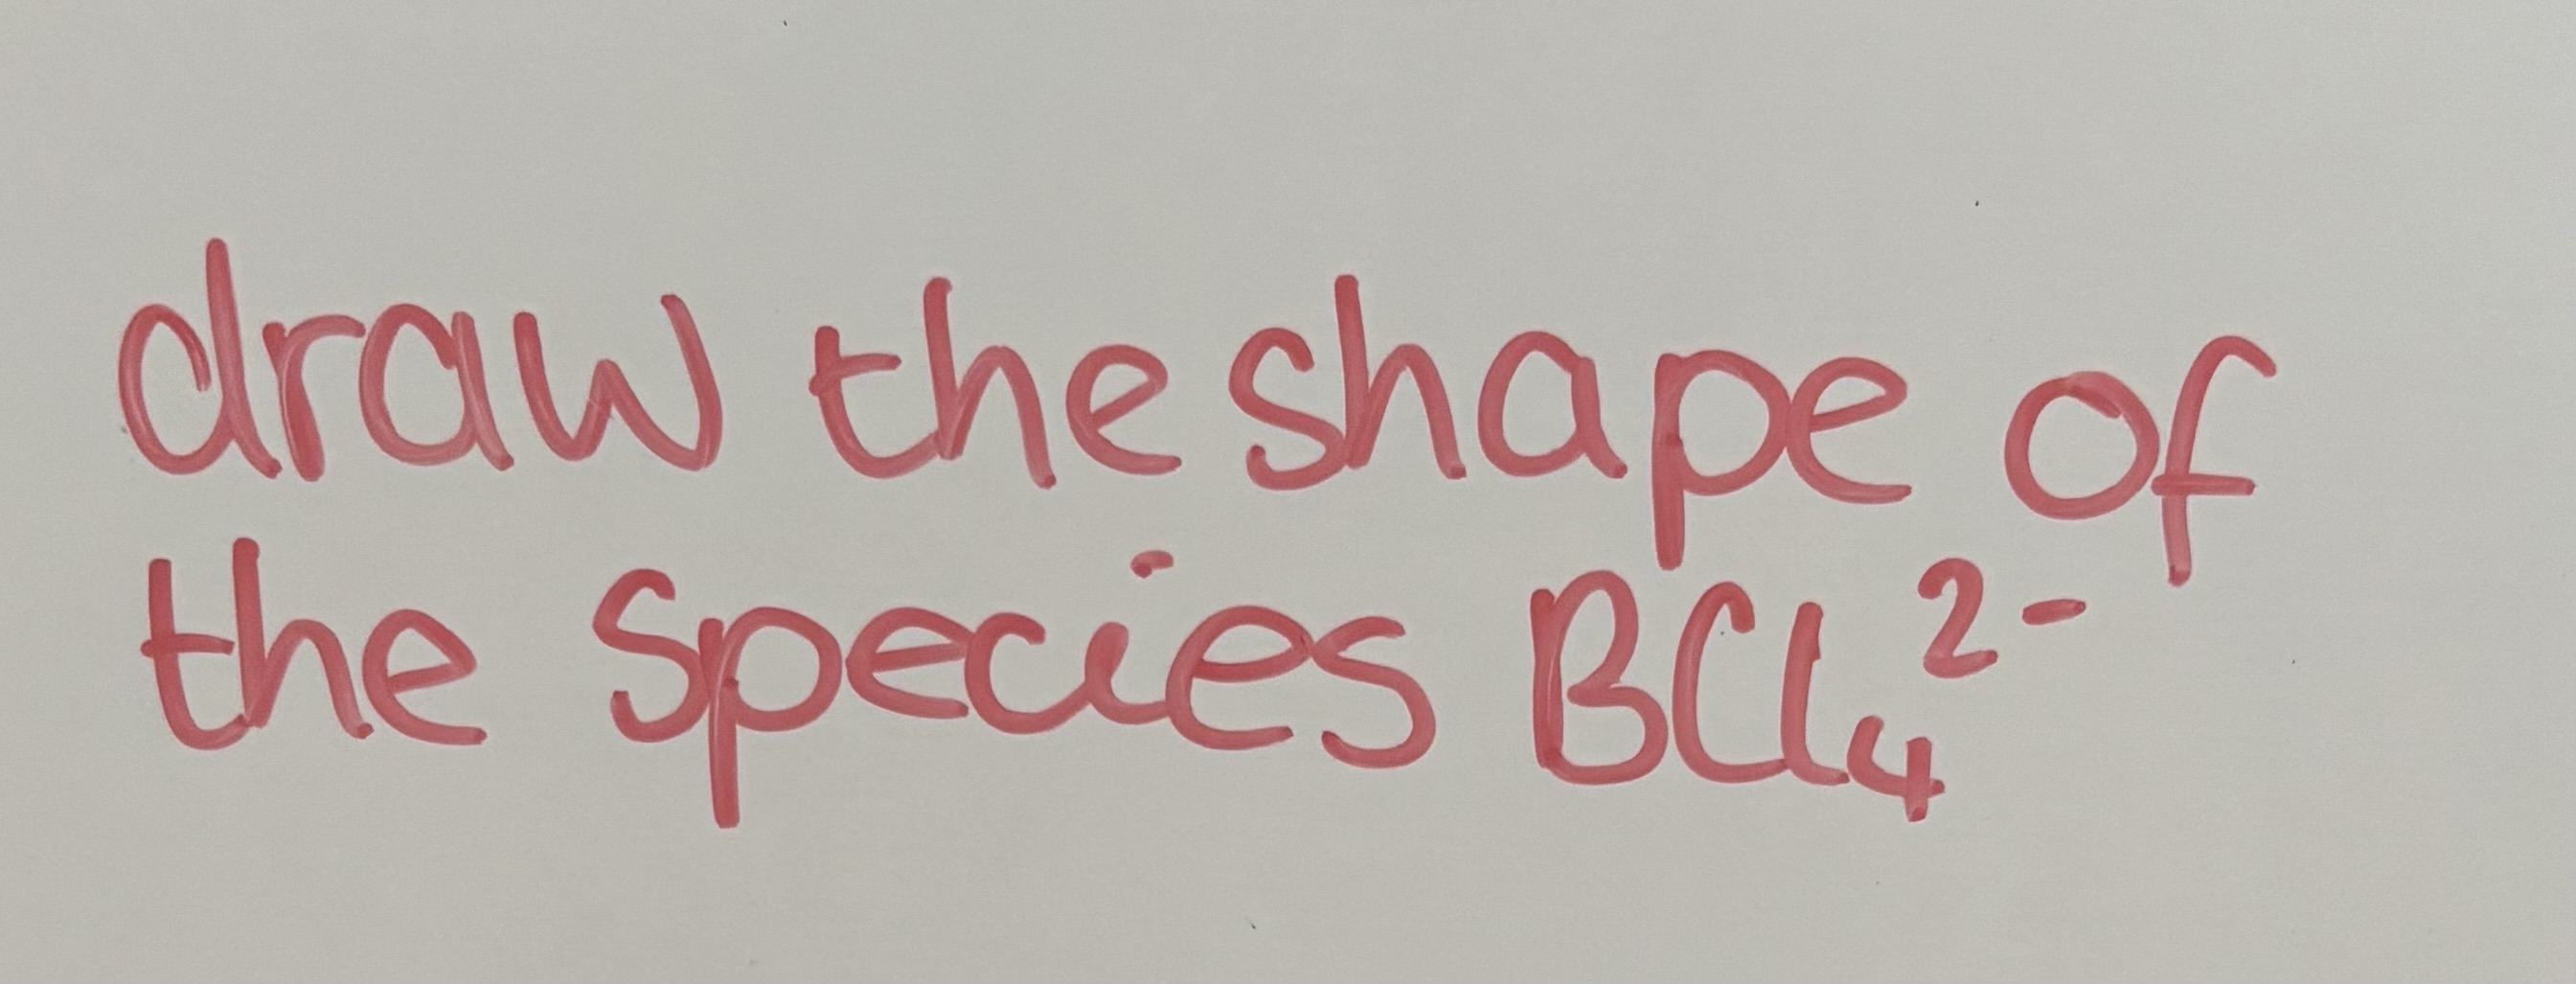 draw the shape of
the species BCl₄²⁻